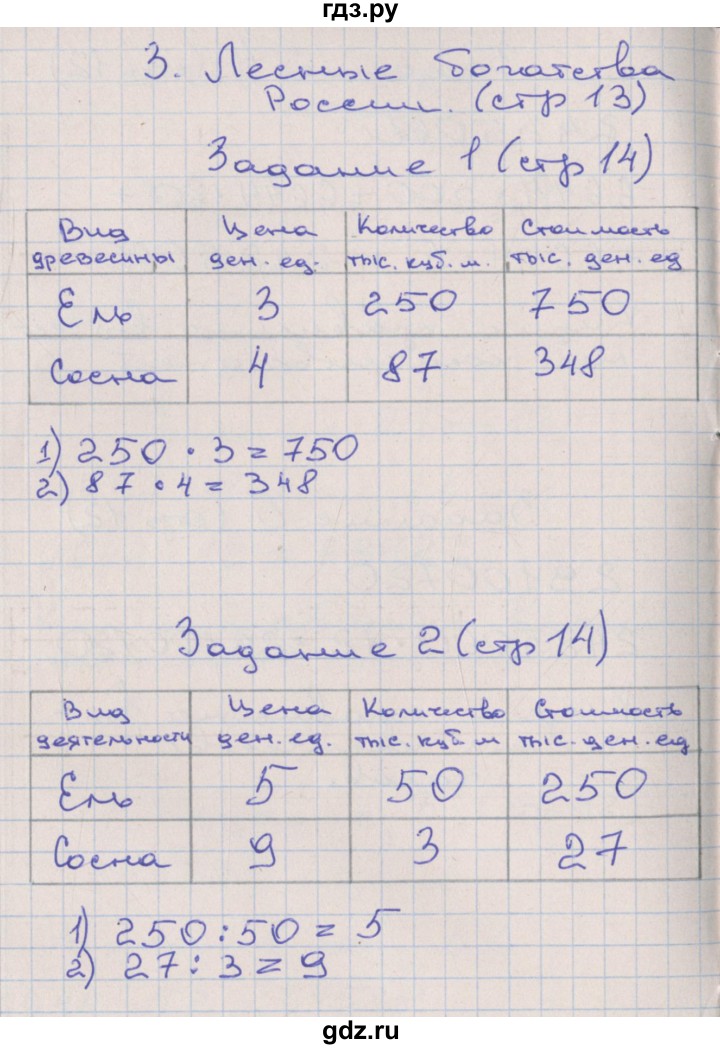 гдз.ру
3. Лесные богатства
России. (стр 13)
Задание 1 (стр 14)
Вид древесины Цена ден. ед. Количество тыс. куб. м. Стоимость тыс. ден. ед
Ель 3 250 750
Сосна 4 87 348
1) 250 · 3 = 750
2) 87 · 4 = 348
Задание 2 (стр 14)
Вид деятельности Цена ден. ед. Количество тыс. куб м Стоимость тыс. ден. ед
Ель 5 50 250
Сосна 9 3 27
1) 250 : 50 = 5
2) 27 : 3 = 9
gdz.ru